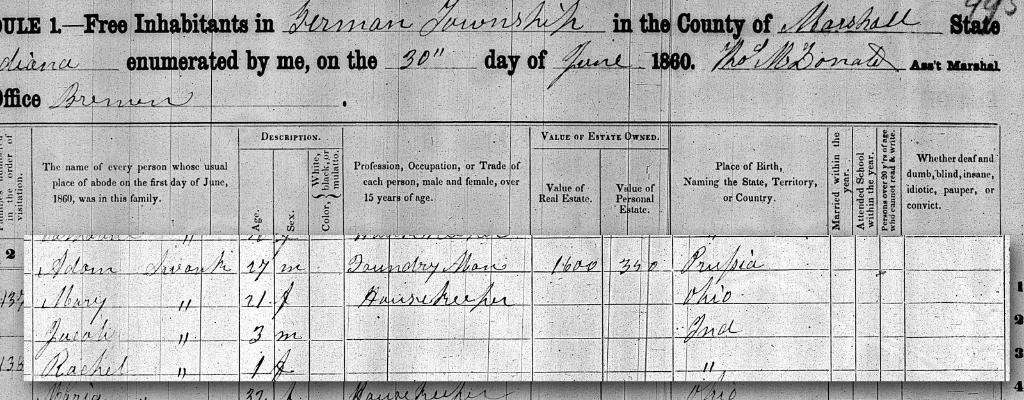 DULE 1.—Free Inhabitants in German Township in the County of Marshall State
diana enumerated by me, on the 30" day of June 1860. Tho^s McDonald Ass't Marshal
Office Bremen .
in the order of visitation.
The name of every person whose usual place of abode on the first day of June, 1860, was in this family.
Description.
Age.
Sex.
Color, {White, black, or mulatto.
Profession, Occupation, or Trade of each person, male and female, over 15 years of age.
Value of Estate Owned.
Value of Real Estate.
Value of Personal Estate.
Place of Birth, Naming the State, Territory, or Country.
Married within the year.
Attended School within the year.
Persons over 20 y'rs of age who cannot read & write.
Whether deaf and dumb, blind, insane, idiotic, pauper, or convict.
2 Adam Swank 27 m Foundry Man 1600 350 Prussia
Mary " 21 f House Keeper Ohio 1
Jacob " 3 m Ind 2
Rachel " 1 f " 3
Maria 32 f House Keeper Ohio 4